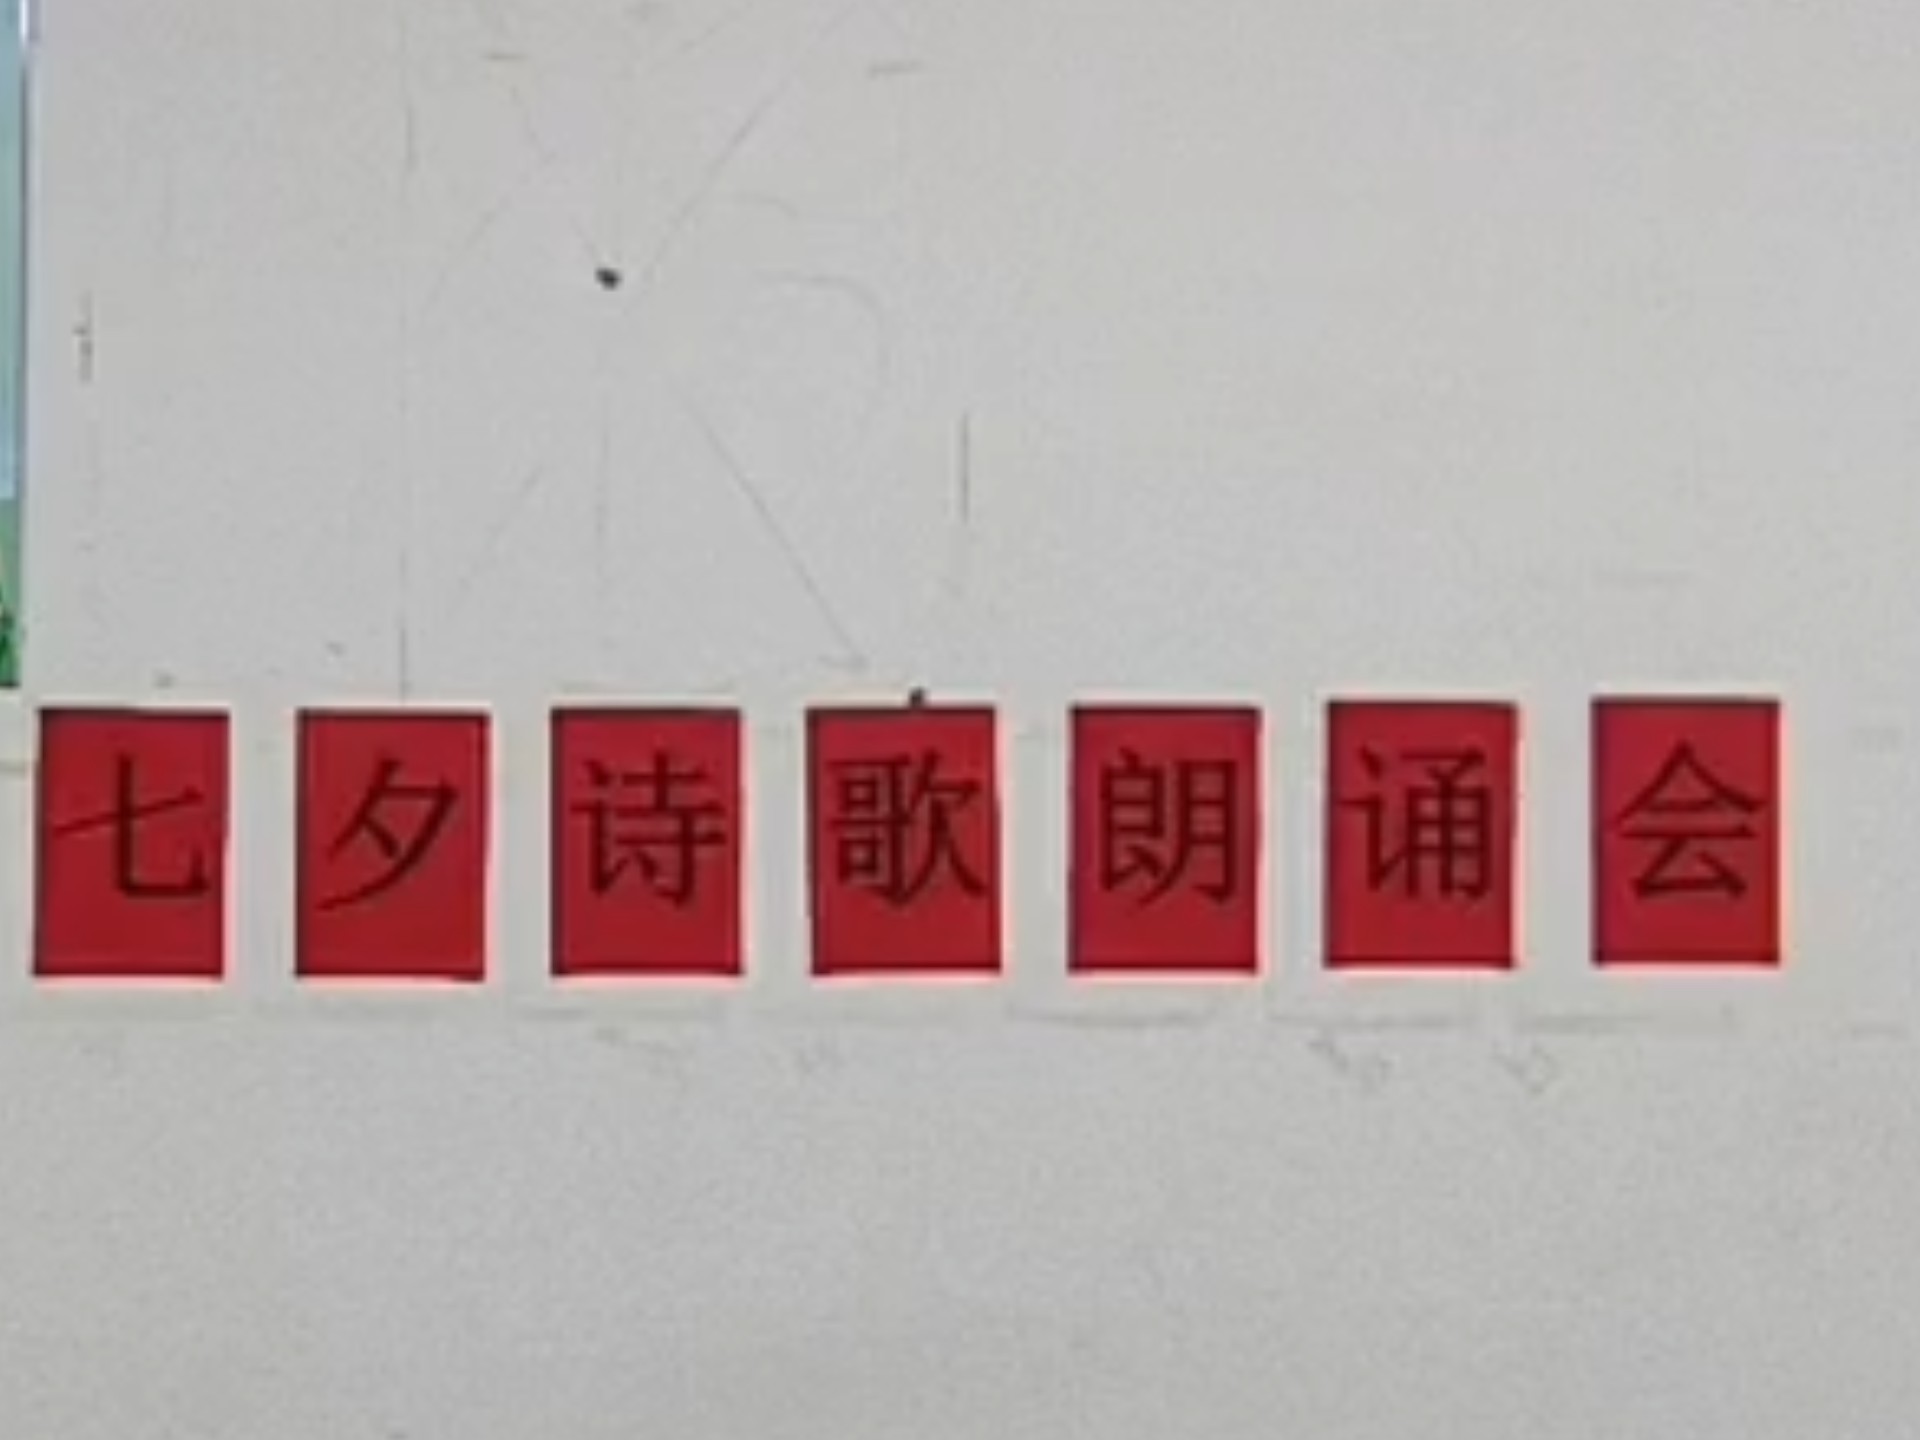 七夕诗歌朗诵会